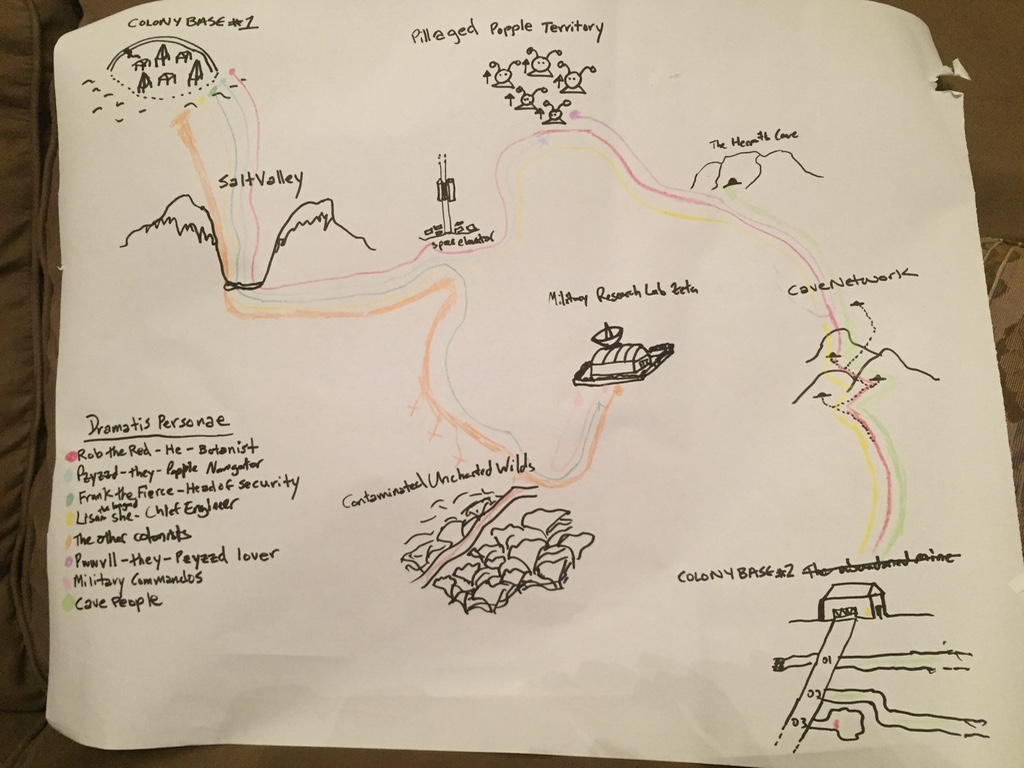 COLONY BASE #1
Pillaged Popple Territory
The Hermits Cave
Salt Valley
space elevator
Cave Network
Military Research Lab Zeta
Dramatis Personae
Rob the Red - He - Botanist
Pzyzzd - they - Popple Navigator
Frank the Fierce - Head of security
Lisan the beyond she - Chief Engineer
The other colonists
Pwwvll - they - Pzyzzd lover
Military Commandos
Cave People
Contaminated Uncharted Wilds
COLONY BASE #2 The abandoned mine
01
02
03